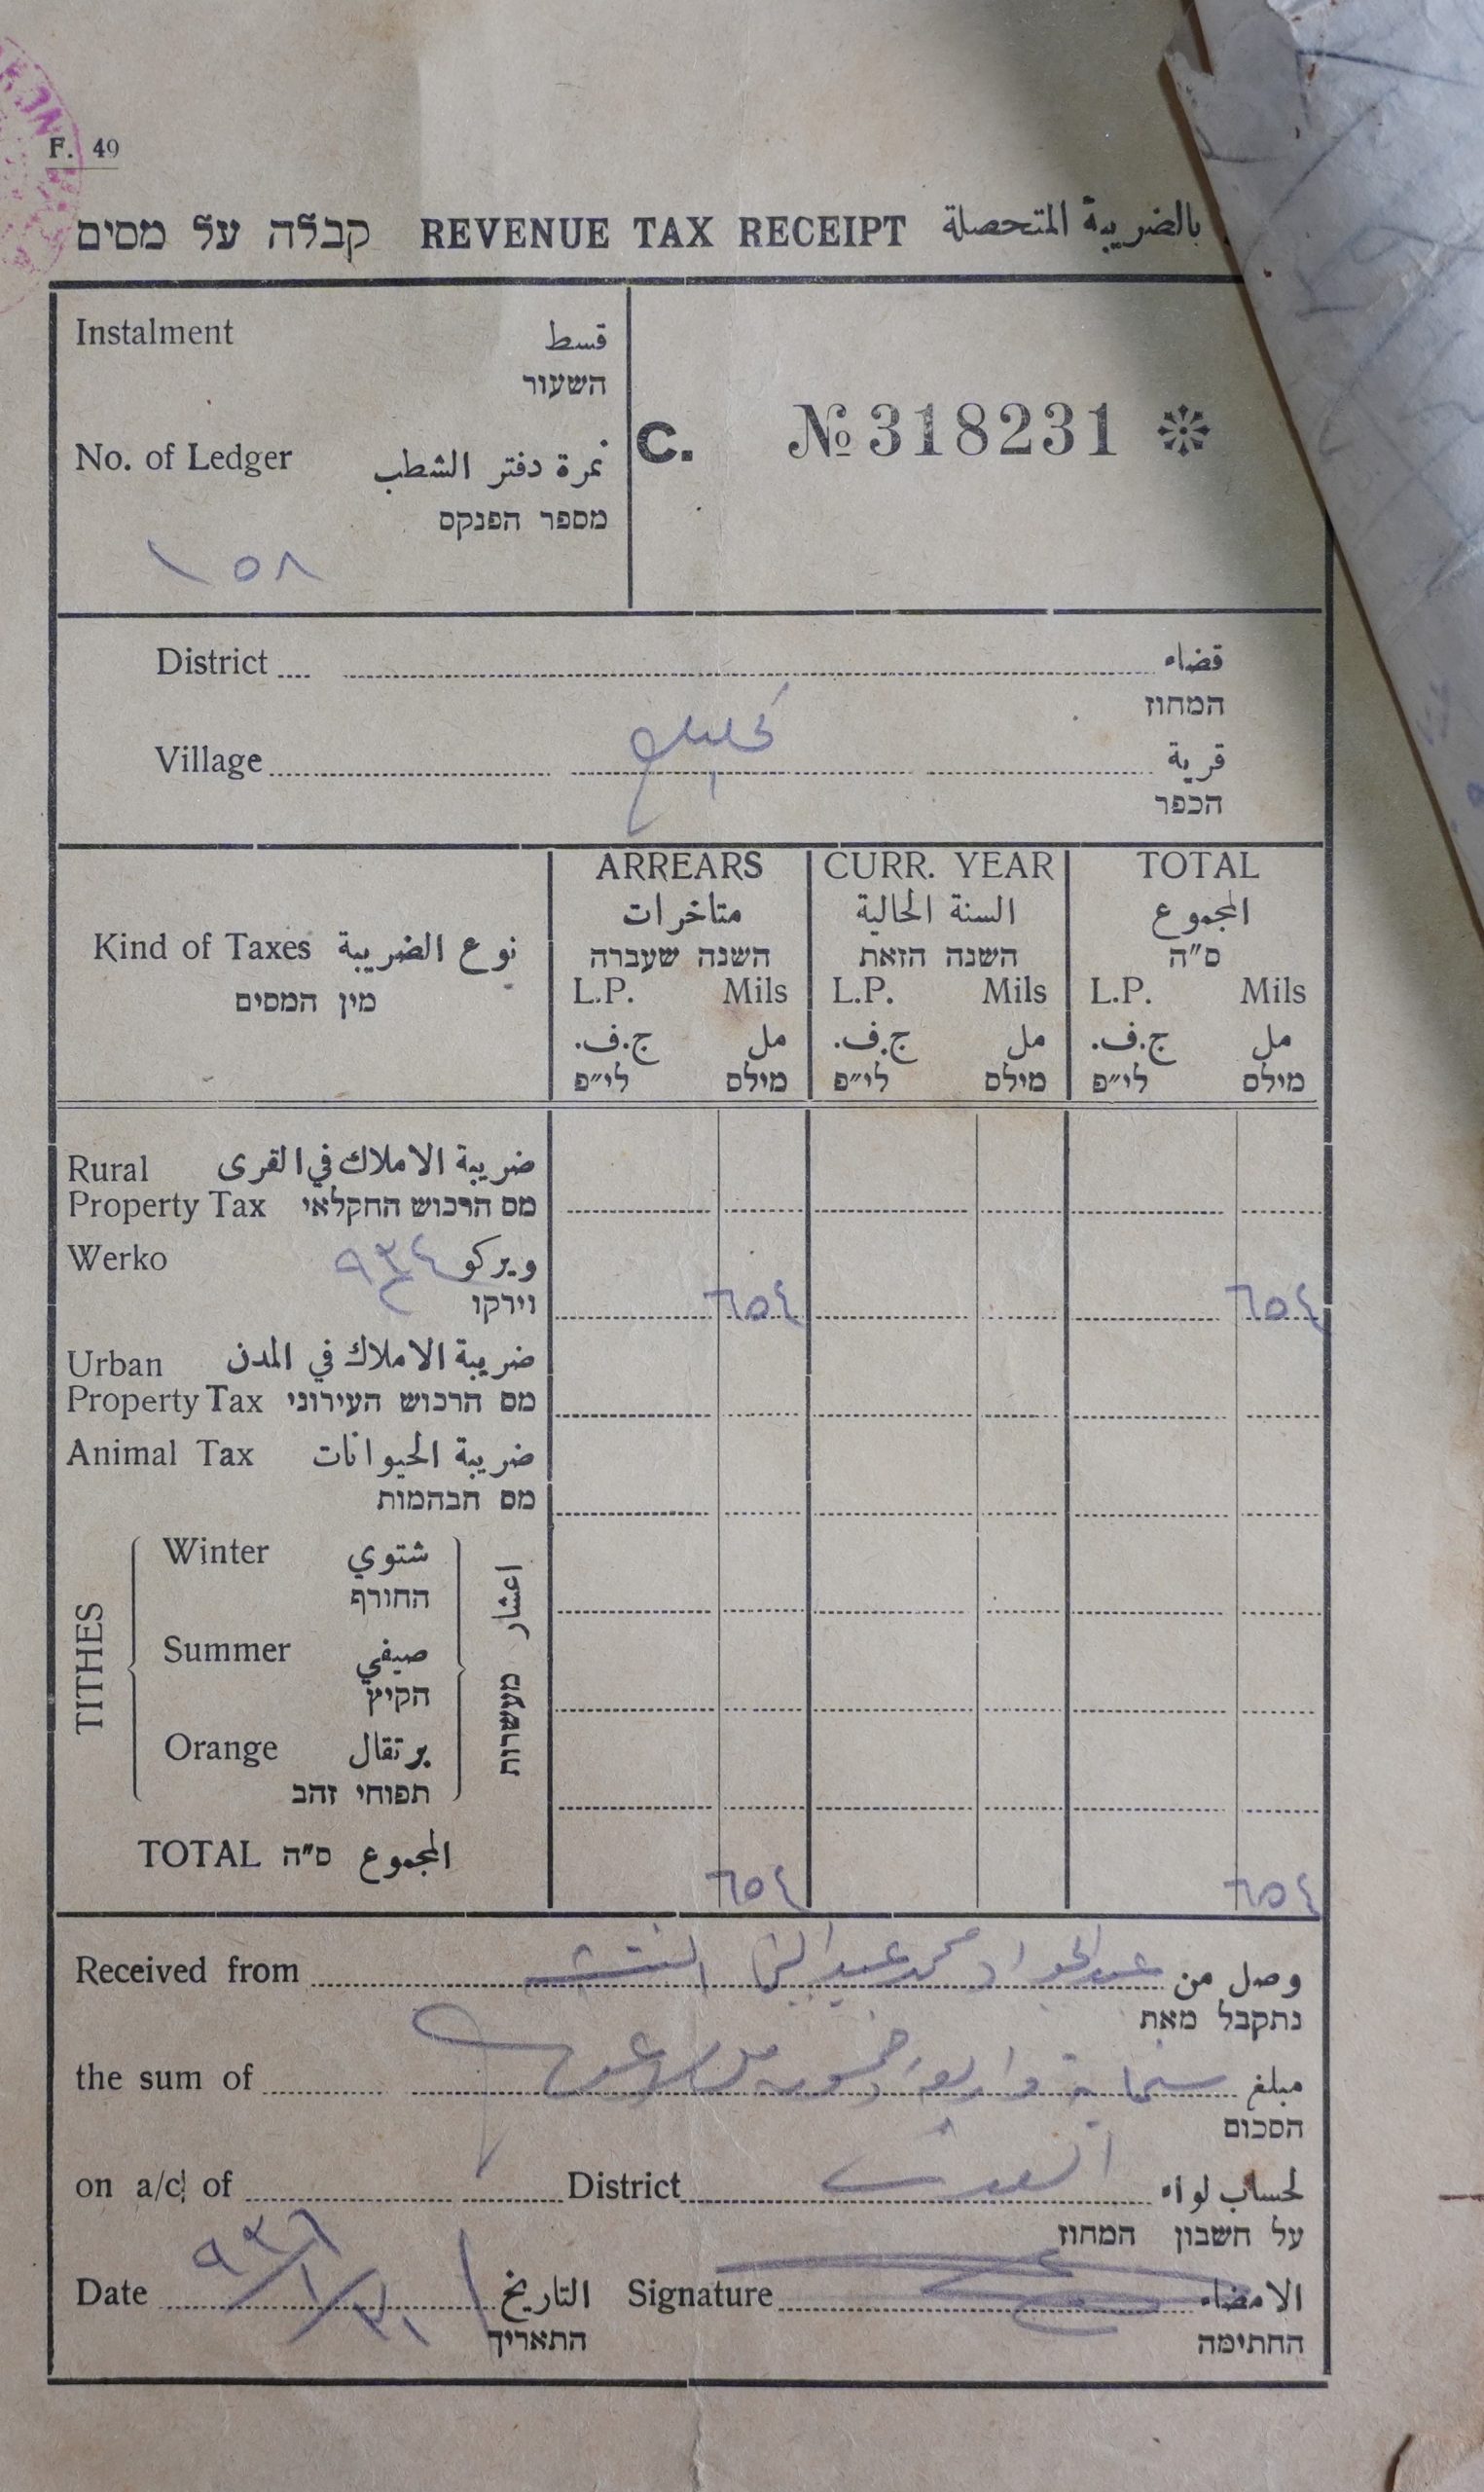 F. 49
קבלה על מסים REVENUE TAX RECEIPT بالضريبة المتحصلة
Instalment قسط
השעור
No. of Ledger نمرة دفتر الشطب
מספר הפנקס
١٥٨
C. № 318231
District قضاء
המחוז
Village قرية
הכפר
Kind of Taxes نوع الضريبة
מין המסים
ARREARS CURR. YEAR TOTAL
متاخرات السنة الحالية المجموع
השנה שעברה השנה הזאת ס"ה
L.P. Mils L.P. Mils L.P. Mils
ج.ف. مل ج.ف. مل ج.ف. مل
לי"פ מילס לי"פ מילס לי"פ מילס
Rural ضريبة الاملاك في القرى
Property Tax מס הרכוש החקלאי
Werko ويركو ٩٣٤
וירקו ٦٥٤ ٦٥٤
Urban ضريبة الاملاك في المدن
Property Tax מס הרכוש העירוני
Animal Tax ضريبة الحيوانات
מס הבהמות
TITHES اعشار מעשרות
Winter شتوي
החורף
Summer صيفي
הקיץ
Orange برتقال
תפוחי זהב
TOTAL ס"ה المجموع ٦٥٤ ٦٥٤
Received from عبد الجواد محمد عبد النبي وصل من
נתקבל מאת
the sum of مبلغ
הסכום
on a/c of District لحساب لواء
על חשבון המחוז
Date ٣١/١/٩٣٦ التاريخ Signature الامضاء
התאריך החתימה